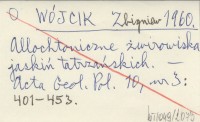 WÓJCIK Zbigniew 1960.
Allochtoniczne żwirowiska
jaskiń tatrzańskich. —
Acta Geol. Pol. 10, nr 3:
401-453.